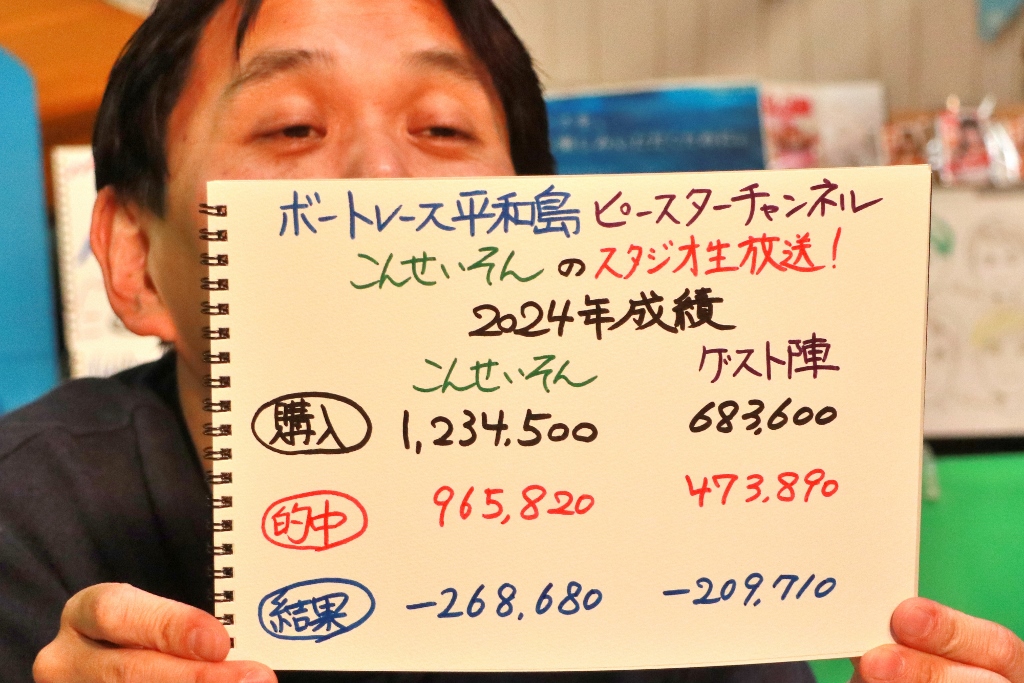 ボートレース平和島 ピースターチャンネル
こんせいそんのスタジオ生放送!
2024年成績
こんせいそん ゲスト陣
購入 1,234,500 683,600
的中 965,820 473,890
結果 -268,680 -209,710